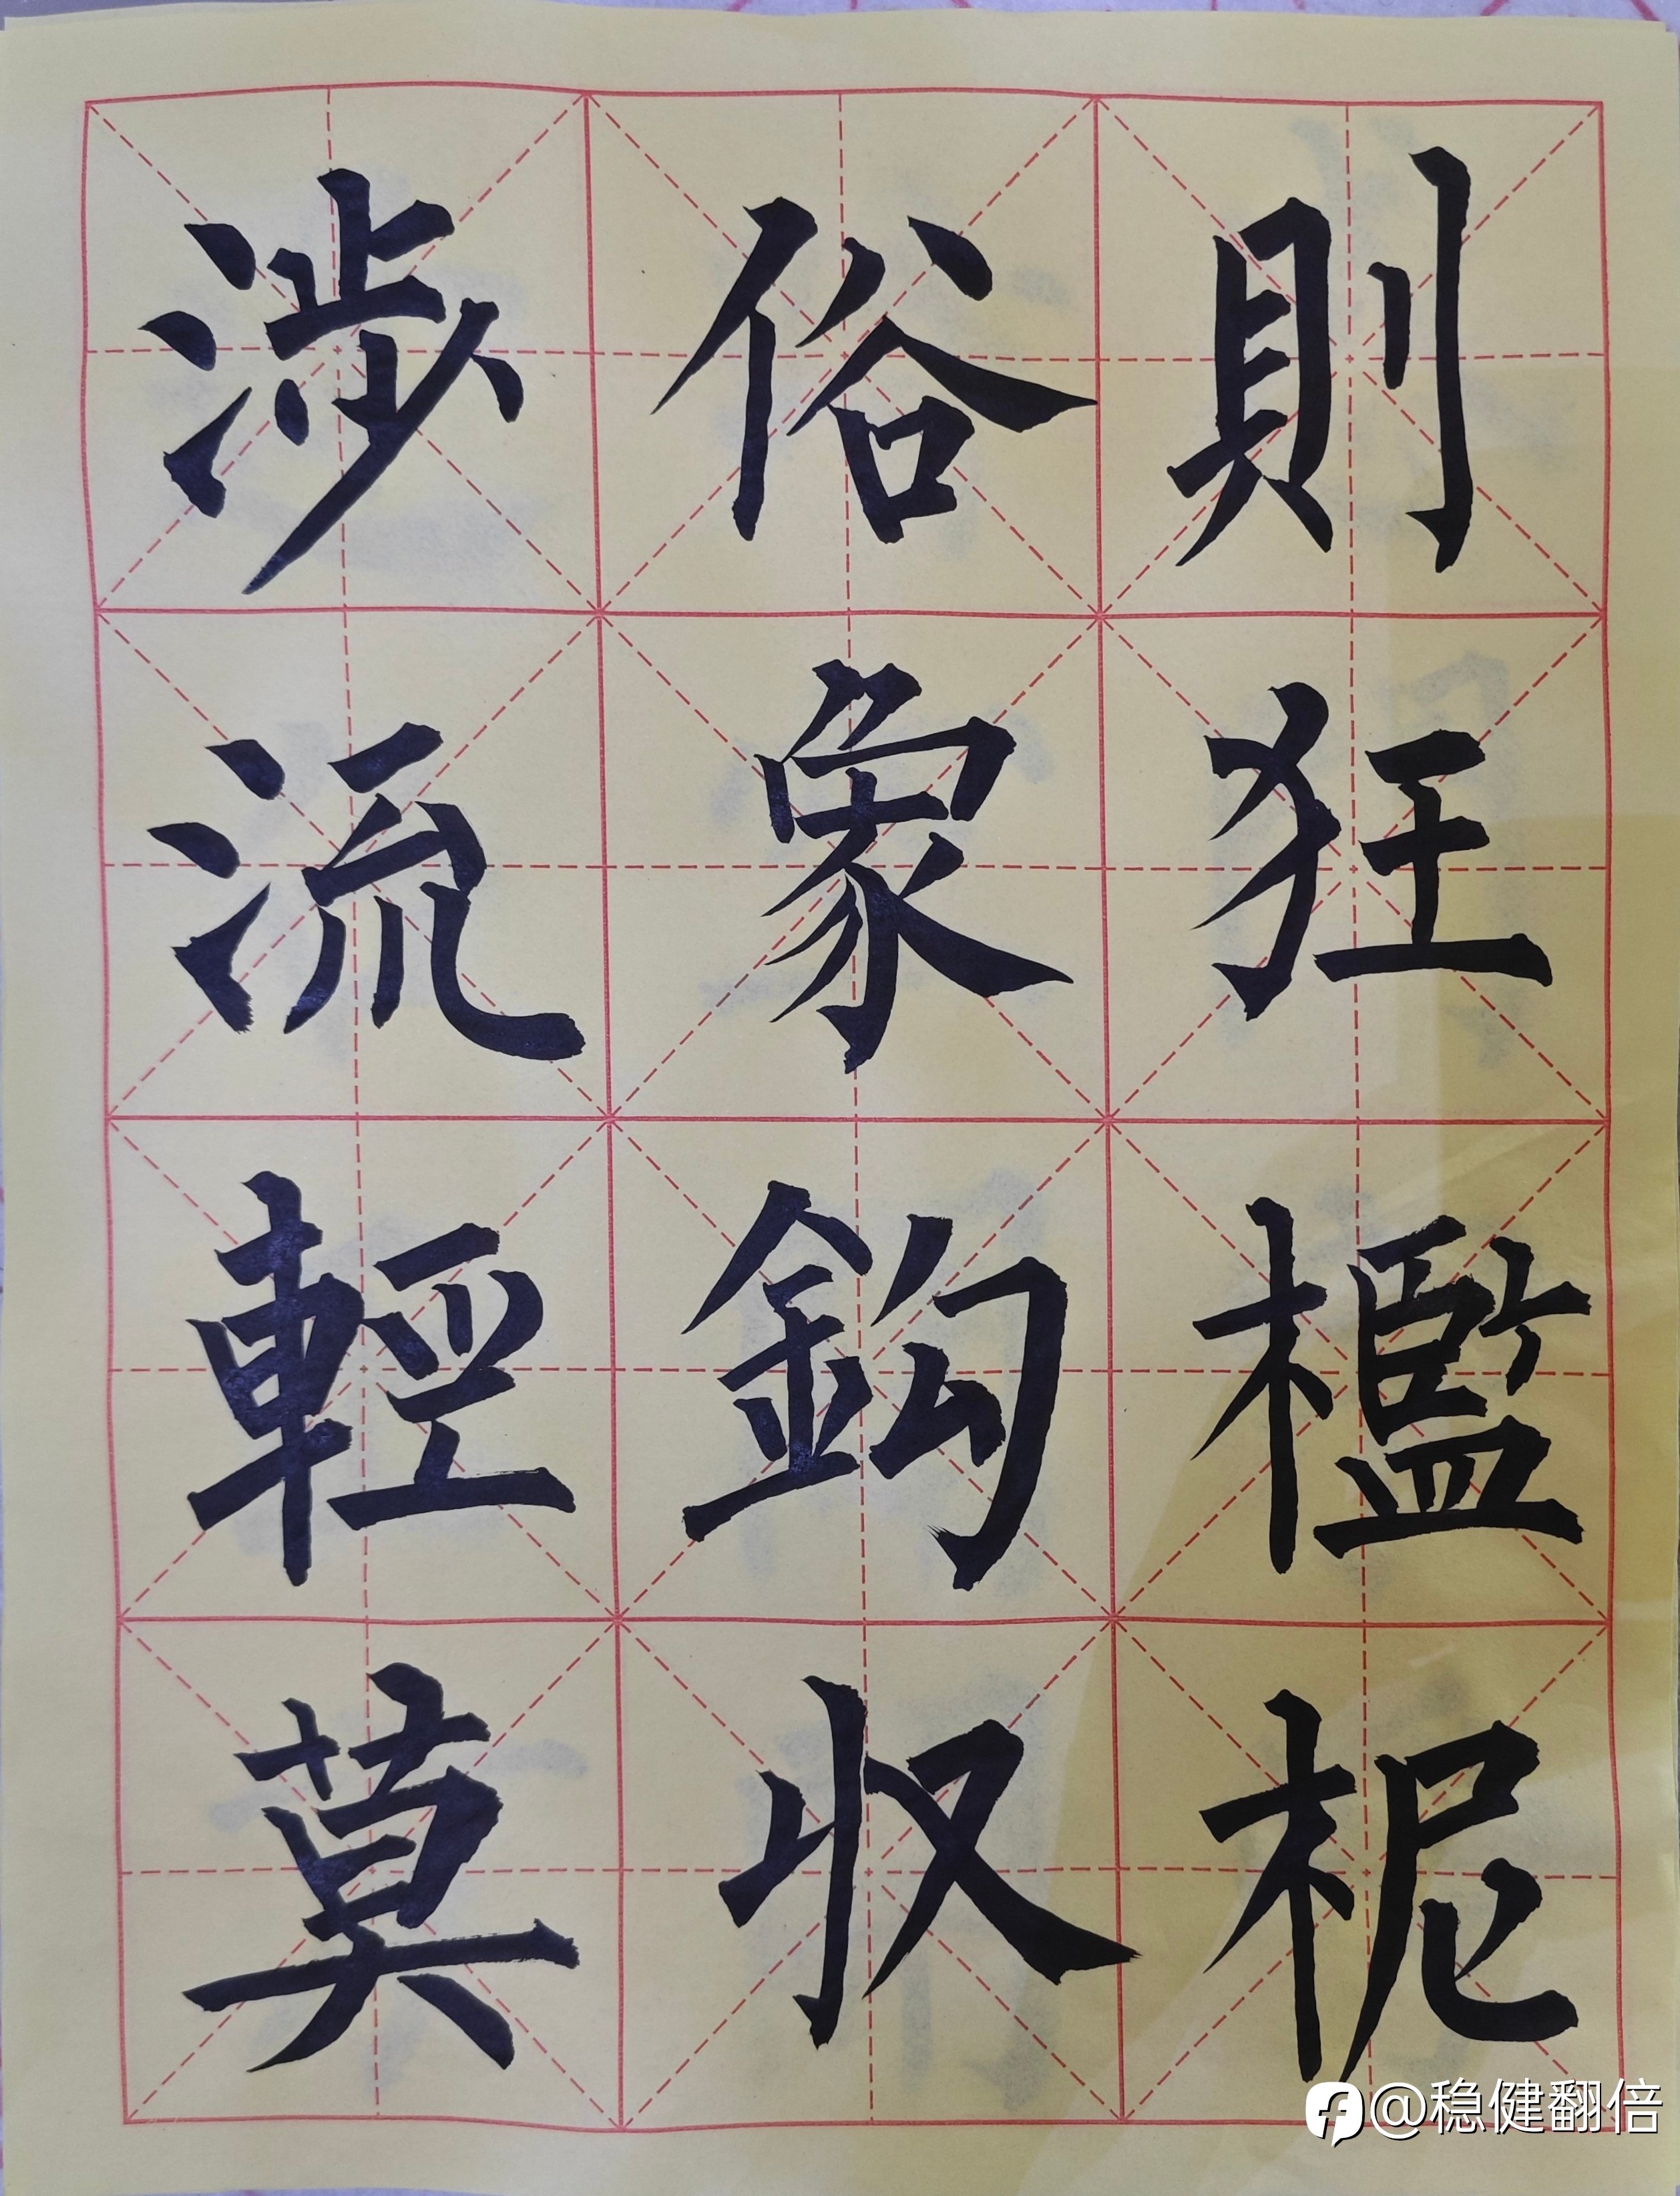 則狂檻柅
俗象鈎収
涉流輕莫
@稳健翻倍